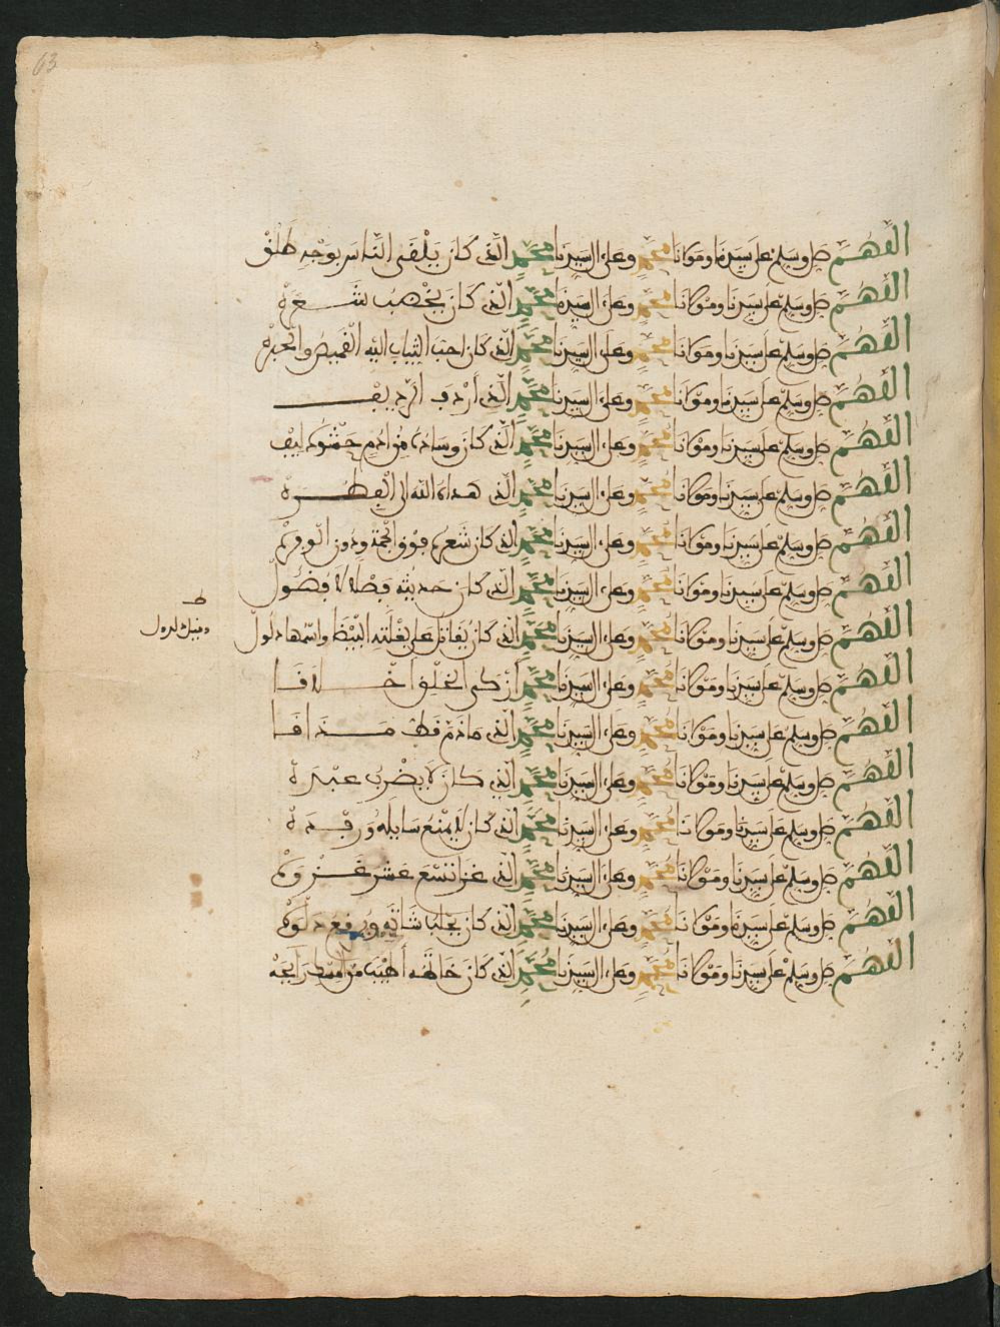 63
اللهم صل وسلم على سيدنا ومولانا محمد وعلى ءال سيدنا محمد الذي كان يلقى الناس بوجه طلق
اللهم صل وسلم على سيدنا ومولانا محمد وعلى ءال سيدنا محمد الذي كان يخضب شعره
اللهم صل وسلم على سيدنا ومولانا محمد وعلى ءال سيدنا محمد الذي كان احب الثياب اليه القميص والحبرة
اللهم صل وسلم على سيدنا ومولانا محمد وعلى ءال سيدنا محمد الذي أردف الرديف
اللهم صل وسلم على سيدنا ومولانا محمد وعلى ءال سيدنا محمد الذي كان وساده من ادم حشوه ليف
اللهم صل وسلم على سيدنا ومولانا محمد وعلى ءال سيدنا محمد الذي هداه الله الى الفطرة
اللهم صل وسلم على سيدنا ومولانا محمد وعلى ءال سيدنا محمد الذي كان شعره فوق الجمة ودون الوفرة
اللهم صل وسلم على سيدنا ومولانا محمد وعلى ءال سيدنا محمد الذي كان حديثه فصلا لا فضول
اللهم صل وسلم على سيدنا ومولانا محمد وعلى ءال سيدنا محمد الذي كان يقاتل على بغلته البيضا واسمها دلول
اللهم صل وسلم على سيدنا ومولانا محمد وعلى ءال سيدنا محمد أزكى الخلق أخلاقا
اللهم صل وسلم على سيدنا ومولانا محمد وعلى ءال سيدنا محمد الذي ما ذم قط مذاقا
اللهم صل وسلم على سيدنا ومولانا محمد وعلى ءال سيدنا محمد الذي كان لا يضرب عبده
اللهم صل وسلم على سيدنا ومولانا محمد وعلى ءال سيدنا محمد الذي كان لا يمنع سايله ورفده
اللهم صل وسلم على سيدنا ومولانا محمد وعلى ءال سيدنا محمد الذي غزا تسع عشر غزوة
اللهم صل وسلم على سيدنا ومولانا محمد وعلى ءال سيدنا محمد الذي كان يحلب شاته ويرفع دلوه
اللهم صل وسلم على سيدنا ومولانا محمد وعلى ءال سيدنا محمد الذي كان خالقه أطيب من